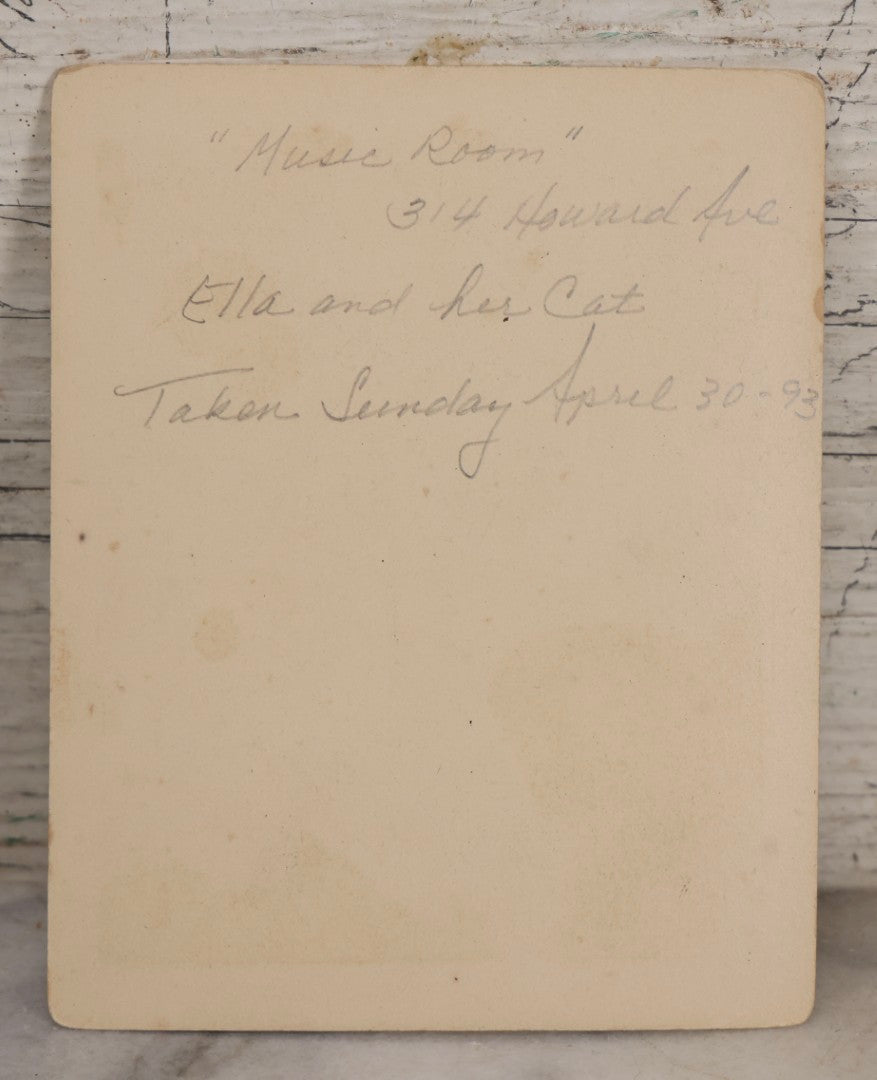 "Music Room"
314 Howard Ave
Ella and her Cat
Taken Sunday April 30-93